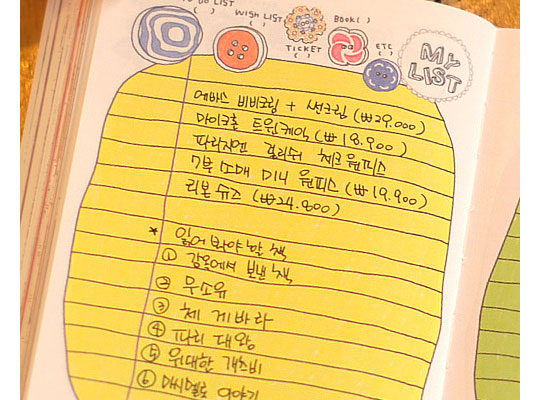 TO DO LIST
( )
WISH LIST
( )
TICKET
( )
BOOK( )
ETC
( )
MY
LIST
에바스 비비크림 + 썬크림 (₩29.000)
마이크홀 트윈케익 (₩18.900)
파라지엔 홀리쉬 체크 원피스
7부 소매 미니 원피스 (₩19.900)
리본 슈즈 (₩24.800)
* 읽어 봐야 할 책
① 감옥에서 보낸 책
② 무소유
③ 체 게바라
④ 파리 대왕
⑤ 위대한 개츠비
⑥ 마시멜로 이야기